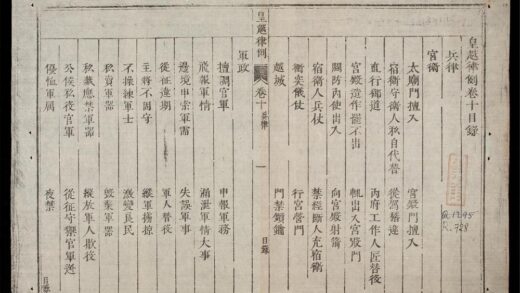 皇越律例卷十目錄
兵律
宮衛
太廟門擅入 宮殿門擅入
宿衛守衛人私自代替 從駕稽違
直行御道 內府工作人匠替役
宮殿造作罷不出 輒出入宮殿門
關防內使出入 向宮殿射箭
宿衛人兵仗 禁經斷人充宿衛
衝突儀仗 行宮營門
越城 門禁鎖鑰
皇越律例 卷十 兵律 一 目錄
軍政
擅調官軍 申報軍務
飛報軍情 漏泄軍情大事
邊境申索軍需 失誤軍事
從征違期 軍人替役
主將不固守 縱軍擄掠
不操練軍士 激變良民
私賣軍器 毀棄軍器
私藏應禁軍器 縱放軍人歇役
公侯私役官軍 從征守禦官軍逃
優恤軍屬 夜禁
目錄
R.728